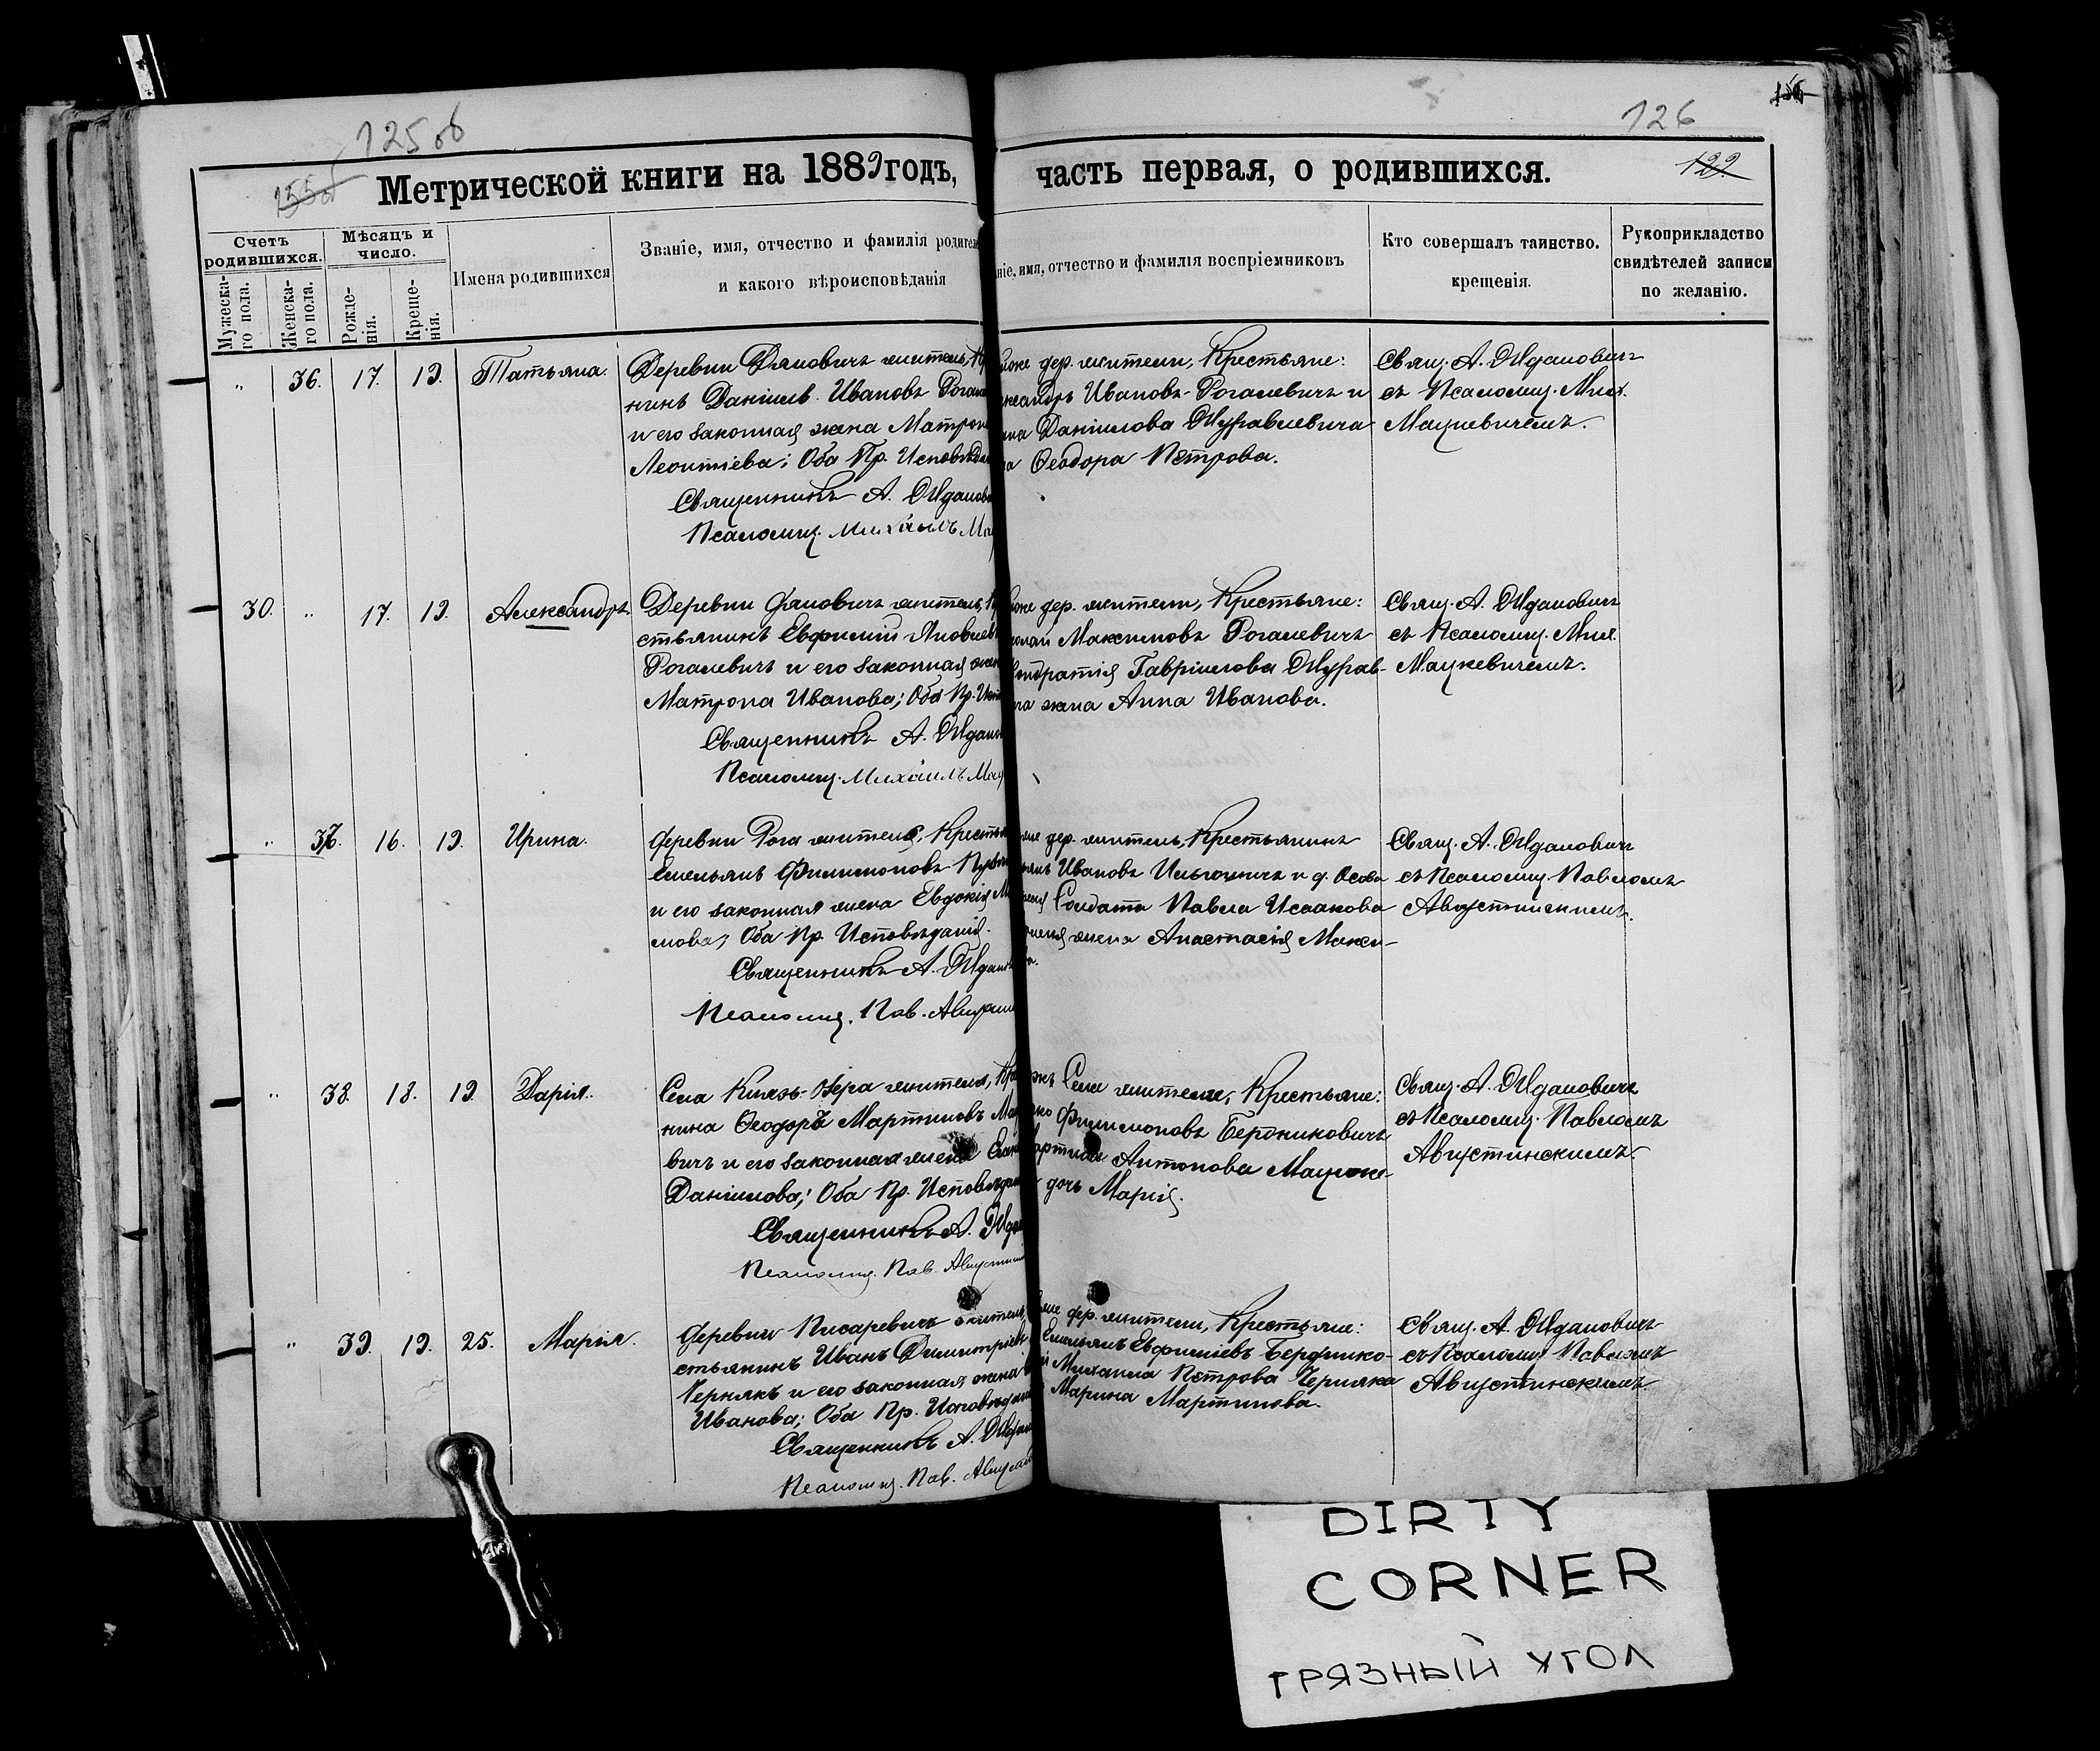 125 об
126
122
Метрической книги на 1889 годъ,
часть первая, о родившихся.
Счетъ родившихся.
Мужеска-
го пола.
Женска-
го пола.
Мѣсяцъ и
число.
Рожде-
нія.
Креще-
нія.
Имена родившихся
Званіе, имя, отчество и фамилія родителе
и какого вѣроисповѣданія
ніе, имя, отчество и фамилія воспріемниковъ
Кто совершалъ таинство.
крещенія.
Рукоприкладство
свидѣтелей записи
по желанію.
„ 36. 17. 19. Татьяна.
Деревни Дяковичъ житель, Кр
нинъ Даніилъ Ивановъ Рогале
и его законная жена Матрон
Леонтіева; Оба Пр. Исповѣдан
Священникъ А. Жданов
Псаломщ. Михаилъ Мац
же дер. жители, Крестьяне:
ксандръ Ивановъ Рогалевичъ и
Даніилова Журавлевича
Ѳеодора Петрова.
Свящ. А. Ждановичъ
съ Псаломщ. Мих.
Мацкевичемъ.
30. „ 17. 19. Александръ.
Деревни Дяковичъ житель, Кр
стьянинъ Евфимій Яковлев
Рогалевичъ и его законная жен
Матрона Иванова; Оба Пр. Исп
Священникъ А. Ждан
Псаломщ. Михаилъ Мац
же дер. жители, Крестьяне:
колай Максимовъ Рогалевичъ
ндратія Гавріилова Журав-
жена Анна Иванова.
Свящ. А. Ждановичъ
съ Псаломщ. Мих.
Мацкевичемъ.
„ 37. 16. 19. Ирина.
Деревни Рога житель, Кресть
Емельянъ Филимоновъ
и его законная жена Евдокія М
мова; Оба Пр. Исповѣданія.
Священникъ А. Ждан
Псаломщ. Пав. Августин
дер. житель, Крестьянинъ
Ивановъ и д.
Солдата Павла Исаакова
жена Анастасія Макси-
ва.
Свящ. А. Ждановичъ
съ Псаломщ. Павломъ
Августинскимъ.
„ 38. 18. 19. Дарія.
Села Князь-Озера жителя, Кре
нина Ѳеодоръ Мартиновъ Ма
вичъ и его законная жена
Даніилова; Оба Пр. Исповѣдан
Священникъ А. Ждан
Псаломщ. Пав. Августин
Села жители, Крестьяне:
Филимоновъ Берднековичъ
Антонова
дочь Марія.
Свящ. А. Ждановичъ
съ Псаломщ. Павломъ
Августинскимъ.
„ 39. 19. 25. Марія.
Деревни Писаревичъ житель,
стьянинъ Иванъ Димитріев
Чернякъ и его законная жена
Иванова; Оба Пр. Исповѣдан
Священникъ А. Ждан
Псаломщ. Пав. Августин
дер. жители, Крестьяне:
Емельянъ Евфиміевъ
Михаила Петрова Черняка
Марина Мартинова.
Свящ. А. Ждановичъ
съ Псаломщ. Павломъ
Августинскимъ
DIRTY
CORNER
ГРЯЗНЫЙ УГОЛ